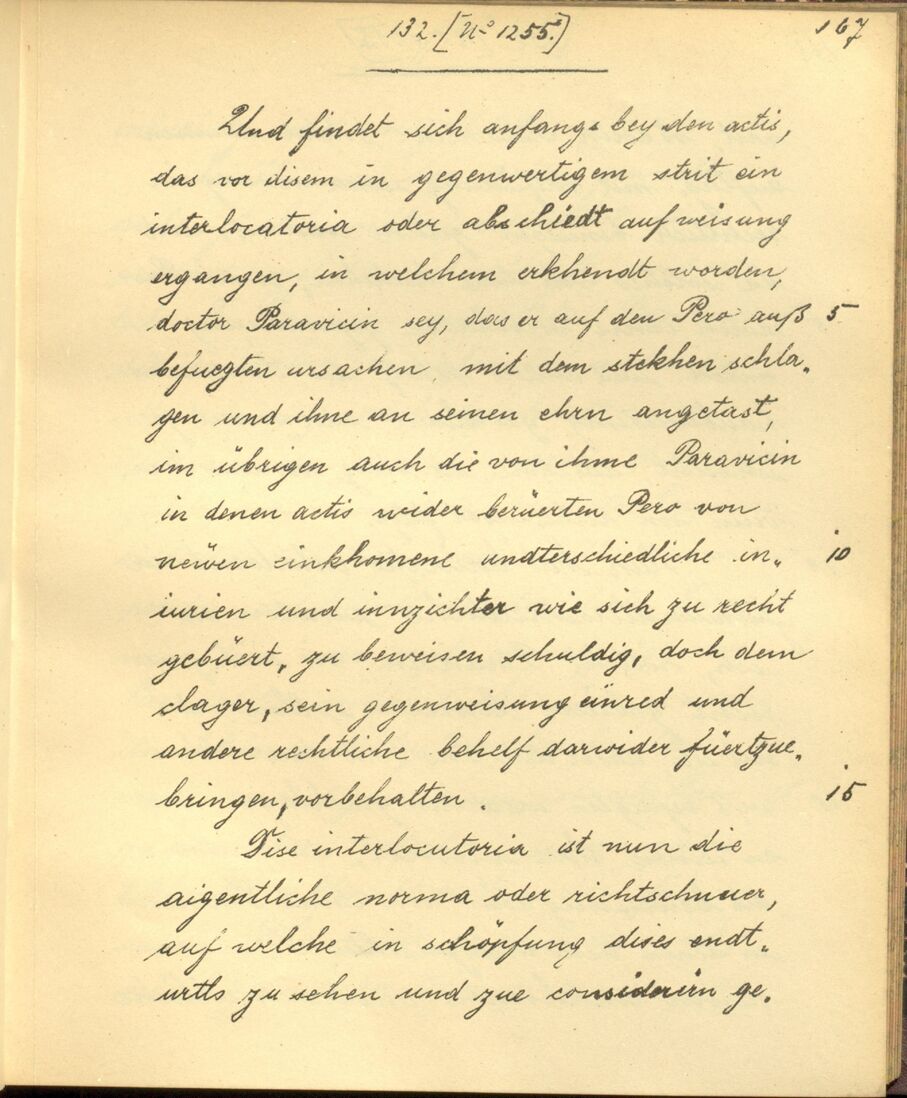 132. [No 1255.]
167
Und findet sich anfangs bey den actis,
das vor disem in gegenwertigem strit ein
interlocatoria oder abschiedt auf weisung
ergangen, in welchem erkhendt worden,
doctor Paravicin sey, das er auf den Pero auß 5
befuegten ursachen mit dem stekhen schla„
gen und ihme an seinen ehrn angetast,
im übrigen auch die von ihme Paravicin
in denen actis wider berüerten Pero von
neüen einkhomene undterschiedliche in„ 10
iurien und innzichter wie sich zu recht
gebüert, zu beweisen schuldig, doch dem
clager, sein gegenweisung einred und
andere rechtliche behelf darwider füertzue„
bringen, vorbehalten. 15
Dise interlocutoria ist nun die
aigentliche norma oder richtschnuer,
auf welche in schöpfung dises endt„
urtls zu sehen und zue considerirn ge„